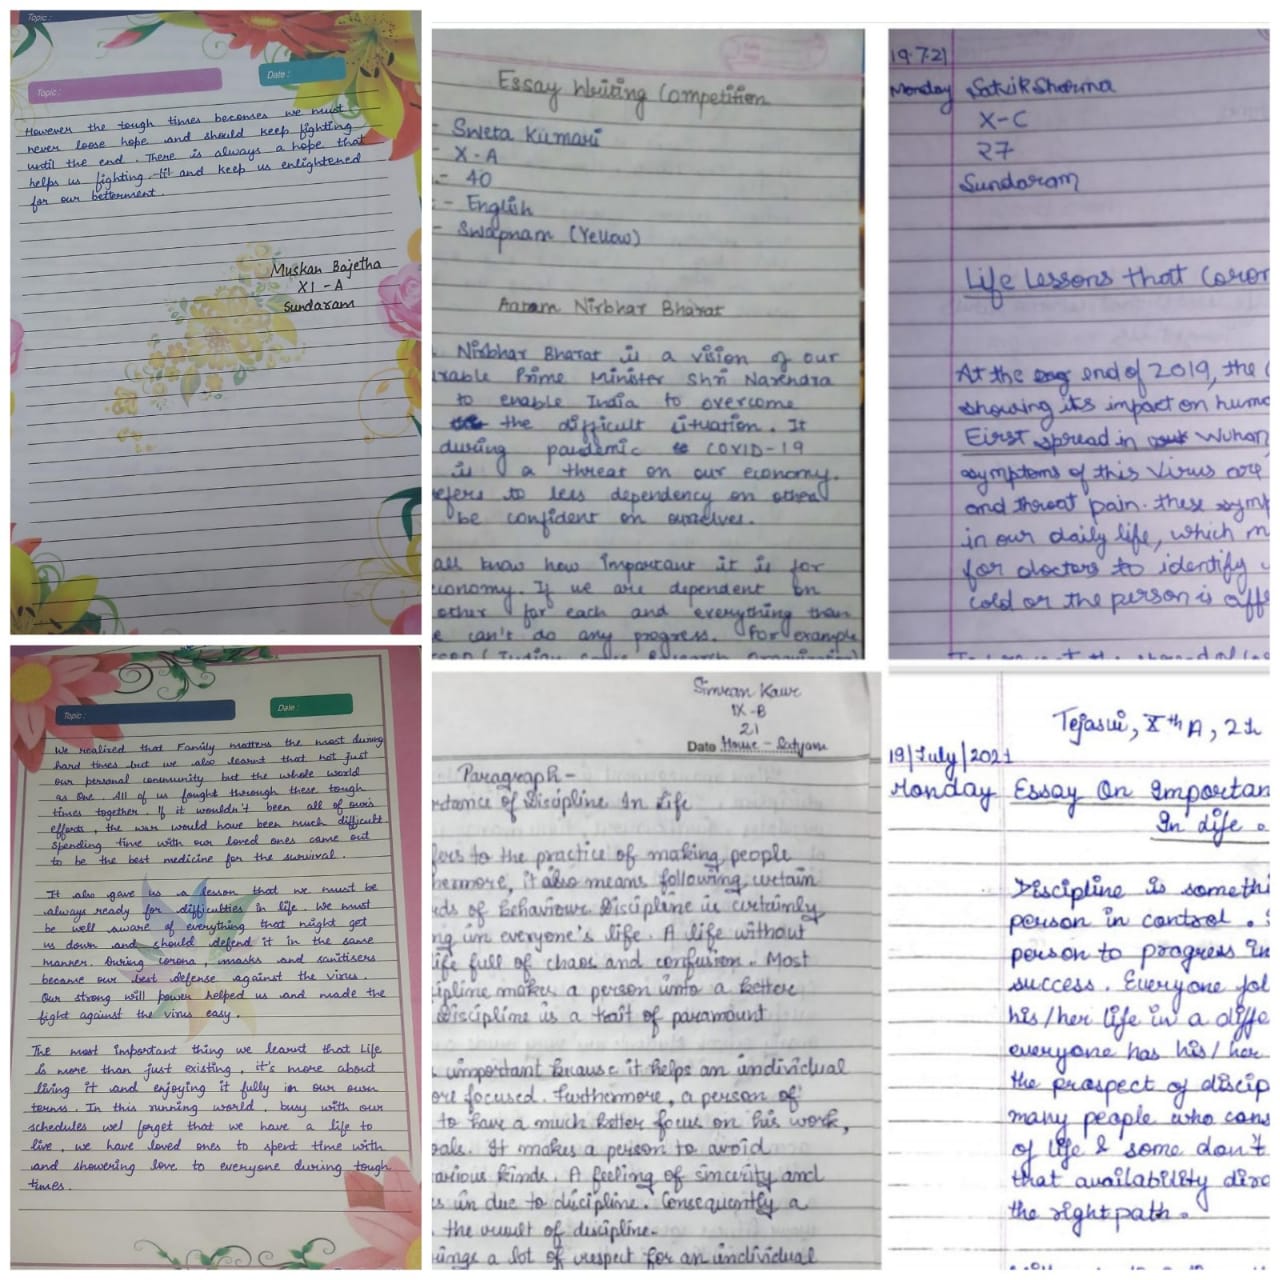 Topic :
Topic :
Date :
However the tough times becomes we must
never loose hope and should keep fighting
until the end . There is always a hope that
helps us fighting till and keep us enlightened
for our betterment.
Muskan Bajetha
XI - A
Sundaram
Essay Writing Competition
- Sweta Kumari
- X - A
- 40
- English
- Swapnam (Yellow)
Aatam Nirbhar Bharat
Nirbhar Bharat is a vision of our
rable Prime Minister Shri Narendra
to enable India to overcome
the difficult situation. It
during pandemic COVID-19
is a threat on our economy.
efers to less dependency on other
be confident on ourselves.
all know how important it is for
conomy. If we are dependent on
other for each and everything than
e can't do any progress. For example
19.7.21
Monday Satvik Sharma
X-C
27
Sundaram
Life Lessons that Coron
At the end of 2019, the
showing its impact on huma
First spread in Wuhan
symptoms of this virus are
and throat pain. these symp
in our daily life, which m
for doctors to identify
cold or the person is affe
Topic :
Date :
We realized that Family matters the most during
hard times but we also learnt that not just
our personal community but the whole world
as One . All of us fought through these tough
times together. If it wouldn't been all of our's
efforts , the war would have been much difficult
Spending time with our loved ones came out
to be the best medicine for the survival .
It also gave us a lesson that we must be
always ready for difficulties in life . We must
be well aware of everything that might get
us down and should defend it in the same
manner. During corona , masks and sanitisers
became our best defense against the virus .
Our strong will power helped us and made the
fight against the virus easy .
The most important thing we learnt that life
is more than just existing , it's more about
living it and enjoying it fully in our own
terms . In this running world , busy with our
schedules we forget that we have a life to
live , we have loved ones to spent time with
and showering love to everyone during tough
times .
Simran Kaur
IX-B
21
Date House - Satyam
Paragraph -
rtance of Discipline In Life
fers to the practice of making people
hermore, it also means following certain
rds of behaviour Discipline is certainly
ng in everyone's life. A life without
ife full of chaos and confusion. Most
ipline makes a person into a better
Discipline is a trait of paramount
important because it helps an individual
ore focused. Furthermore, a person of
to have a much better focus on his work,
oals. It makes a person to avoid
arious kinds. A feeling of sincerity and
s in due to discipline. Consequently a
the result of discipline.
ings a lot of respect for an individual
Tejasvi, Xth A, 21
19/July/2021
Monday Essay On Importan
In Life .
Discipline is somethi
person in control .
person to progress in
success . Everyone fol
his/her life in a diffe
everyone has his/her
the prospect of discip
many people who cons
of life & some don't
that availability dire
the right path .